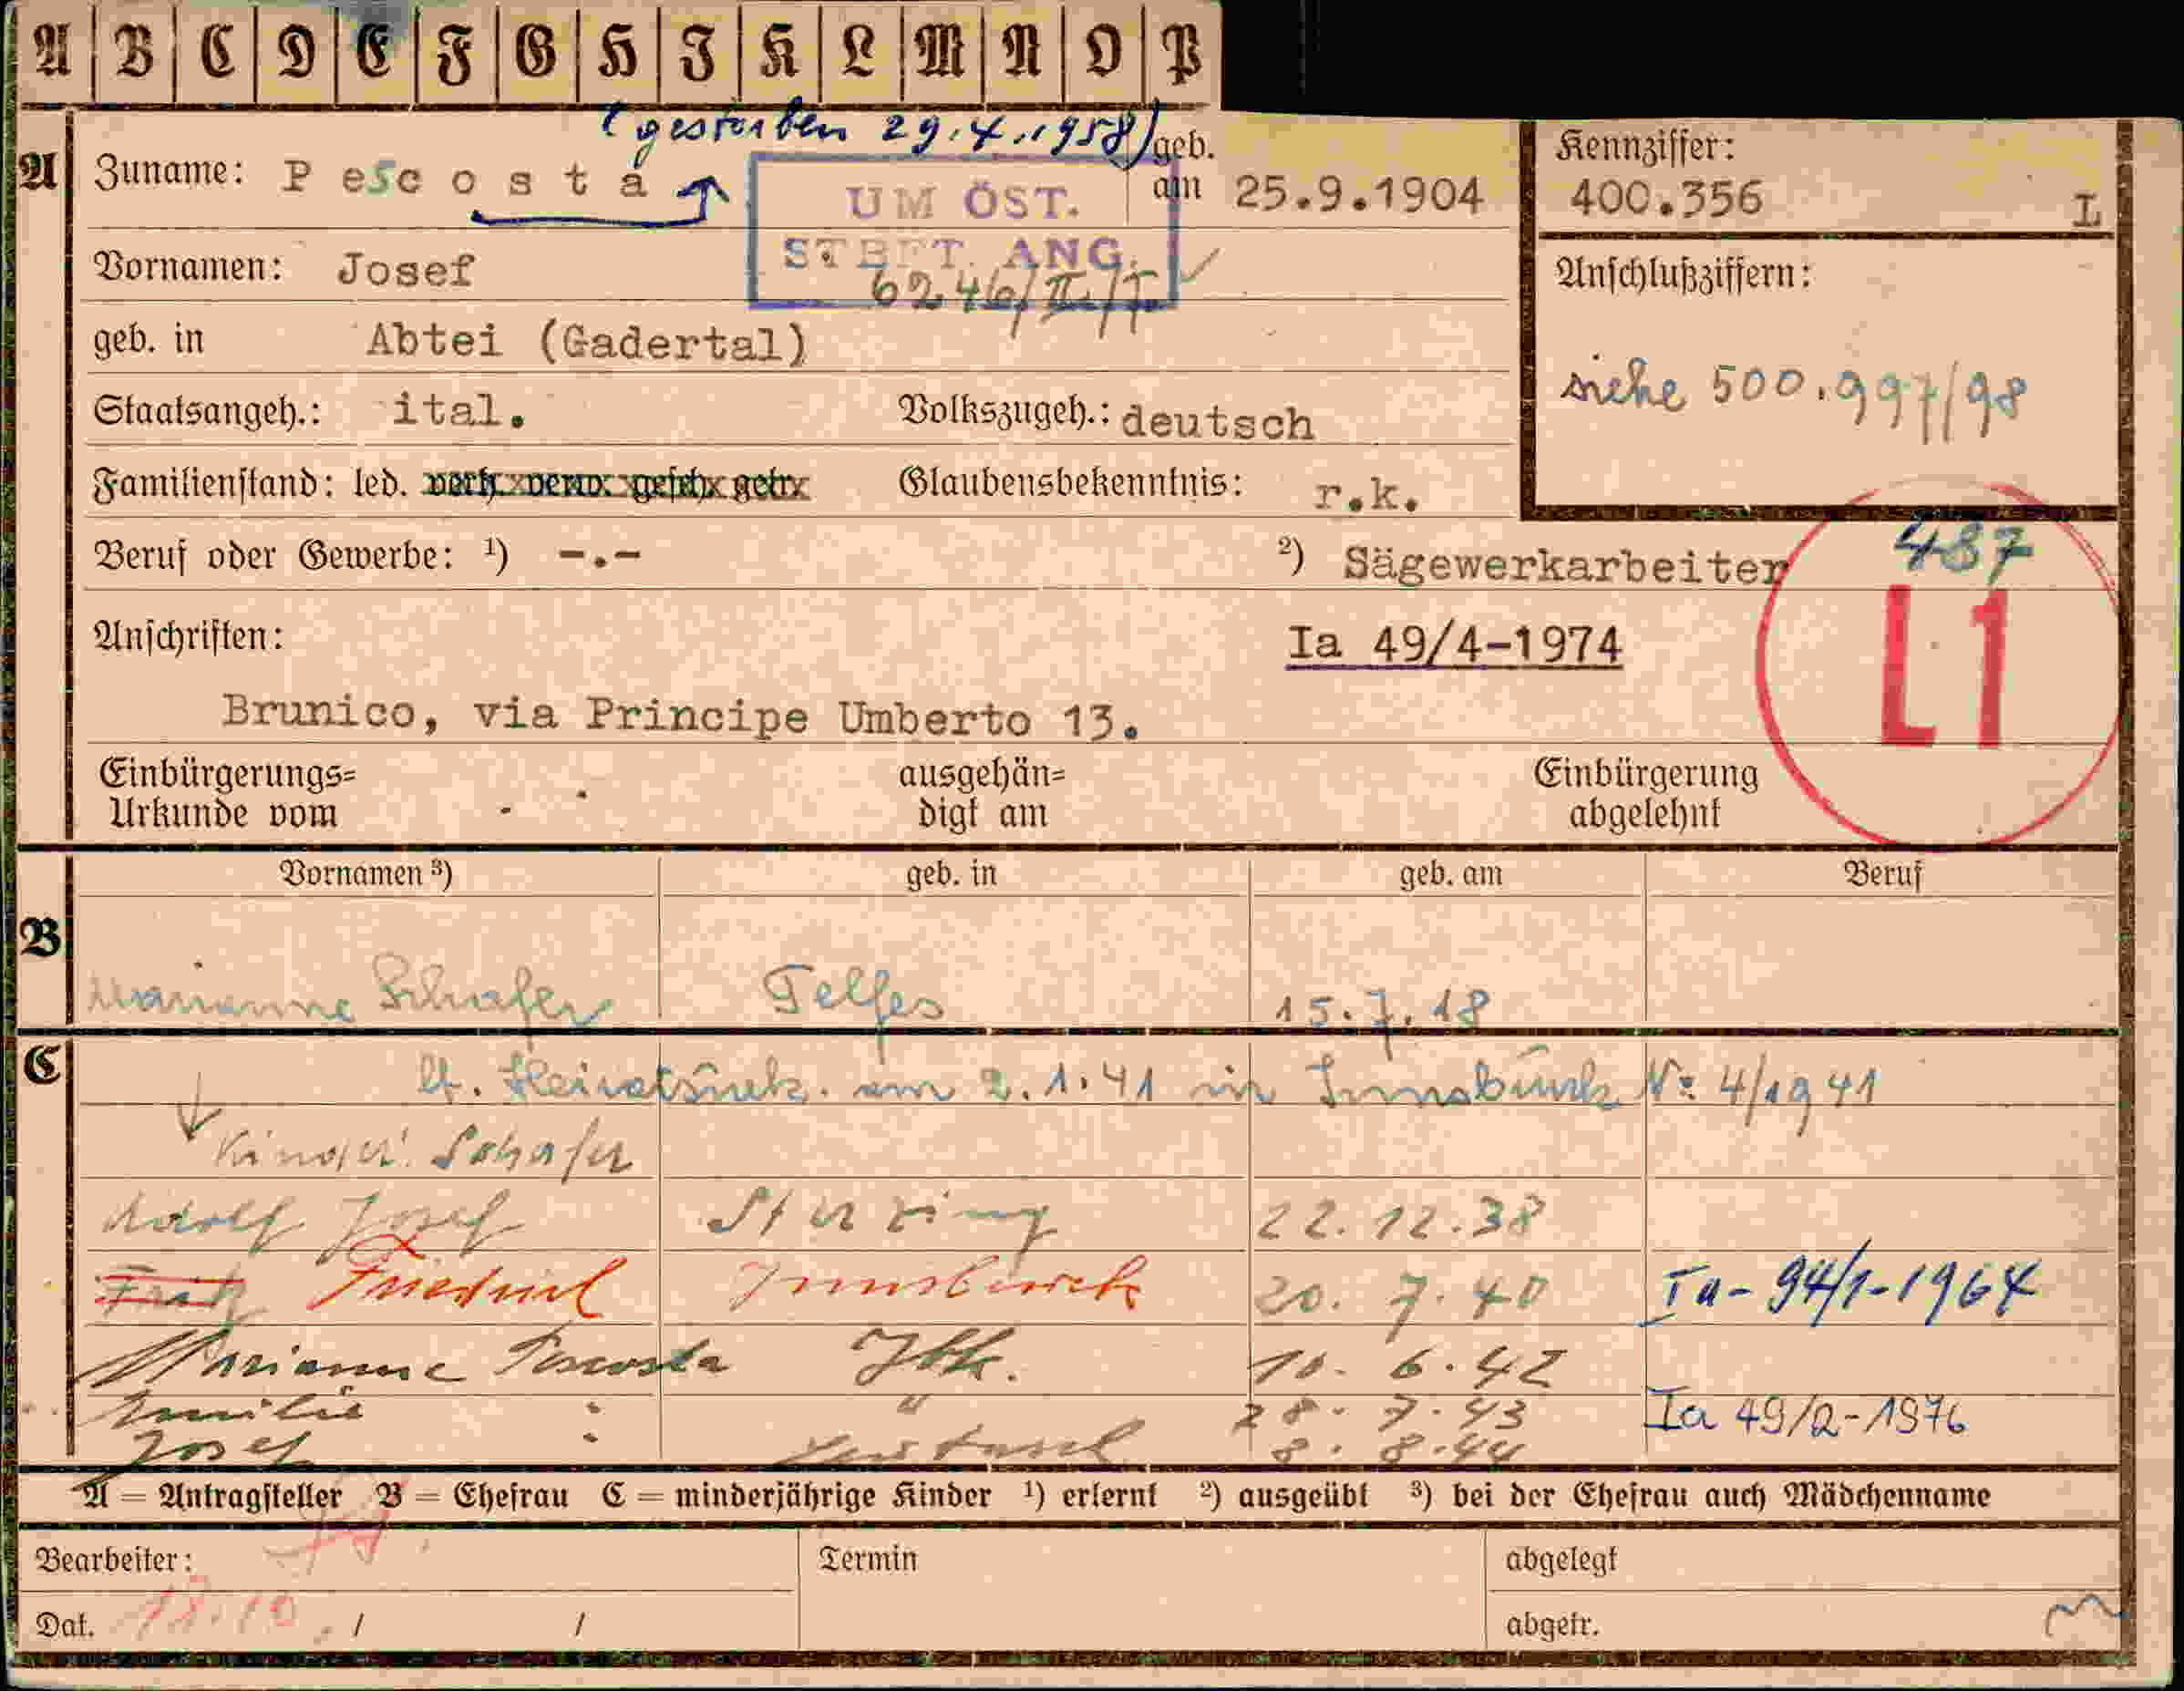 A B C D E F G H I K L M N O P
(gestorben 29.4.1958)
A Zuname: Pescosta geb. am 25.9.1904
Kennziffer: 400.356 L
UM ÖST.
STBFT. ANG.
6246/II/J
Vornamen: Josef
Anschlußziffern:
geb. in Abtei (Gadertal)
siehe 500.997/98
Staatsangeh.: ital. Volkszugeh.: deutsch
Familienstand: led. verh. verw. gesch. getr. Glaubensbekenntnis: r.k.
Beruf oder Gewerbe: ¹) -.- ²) Sägewerkarbeiter
487
L1
Anschriften: Ia 49/4-1974
Brunico, via Principe Umberto 13.
Einbürgerungs= Urkunde vom ausgehän= digt am Einbürgerung abgelehnt
Vornamen ³) geb. in geb. am Beruf
B
Marianne Schafer Telfes 15.7.18
C
lt. Heiratsurk. am 2.1.41 in Innsbruck Nr 4/1941
Kinder: Schafer
Adolf Josef Sterzing 22.12.38
Fritz Friedrich Innsbruck 20.7.40 Ia-94/1-1964
Marianne Pescosta Ibk. 10.6.42
Emilie " " 28.7.43 Ia 49/2-1976
Josef " 8.8.44
A = Antragsteller B = Ehefrau C = minderjährige Kinder ¹) erlernt ²) ausgeübt ³) bei der Ehefrau auch Mädchenname
Bearbeiter: Termin abgelegt
Dat. 18.10. / / abgetr.